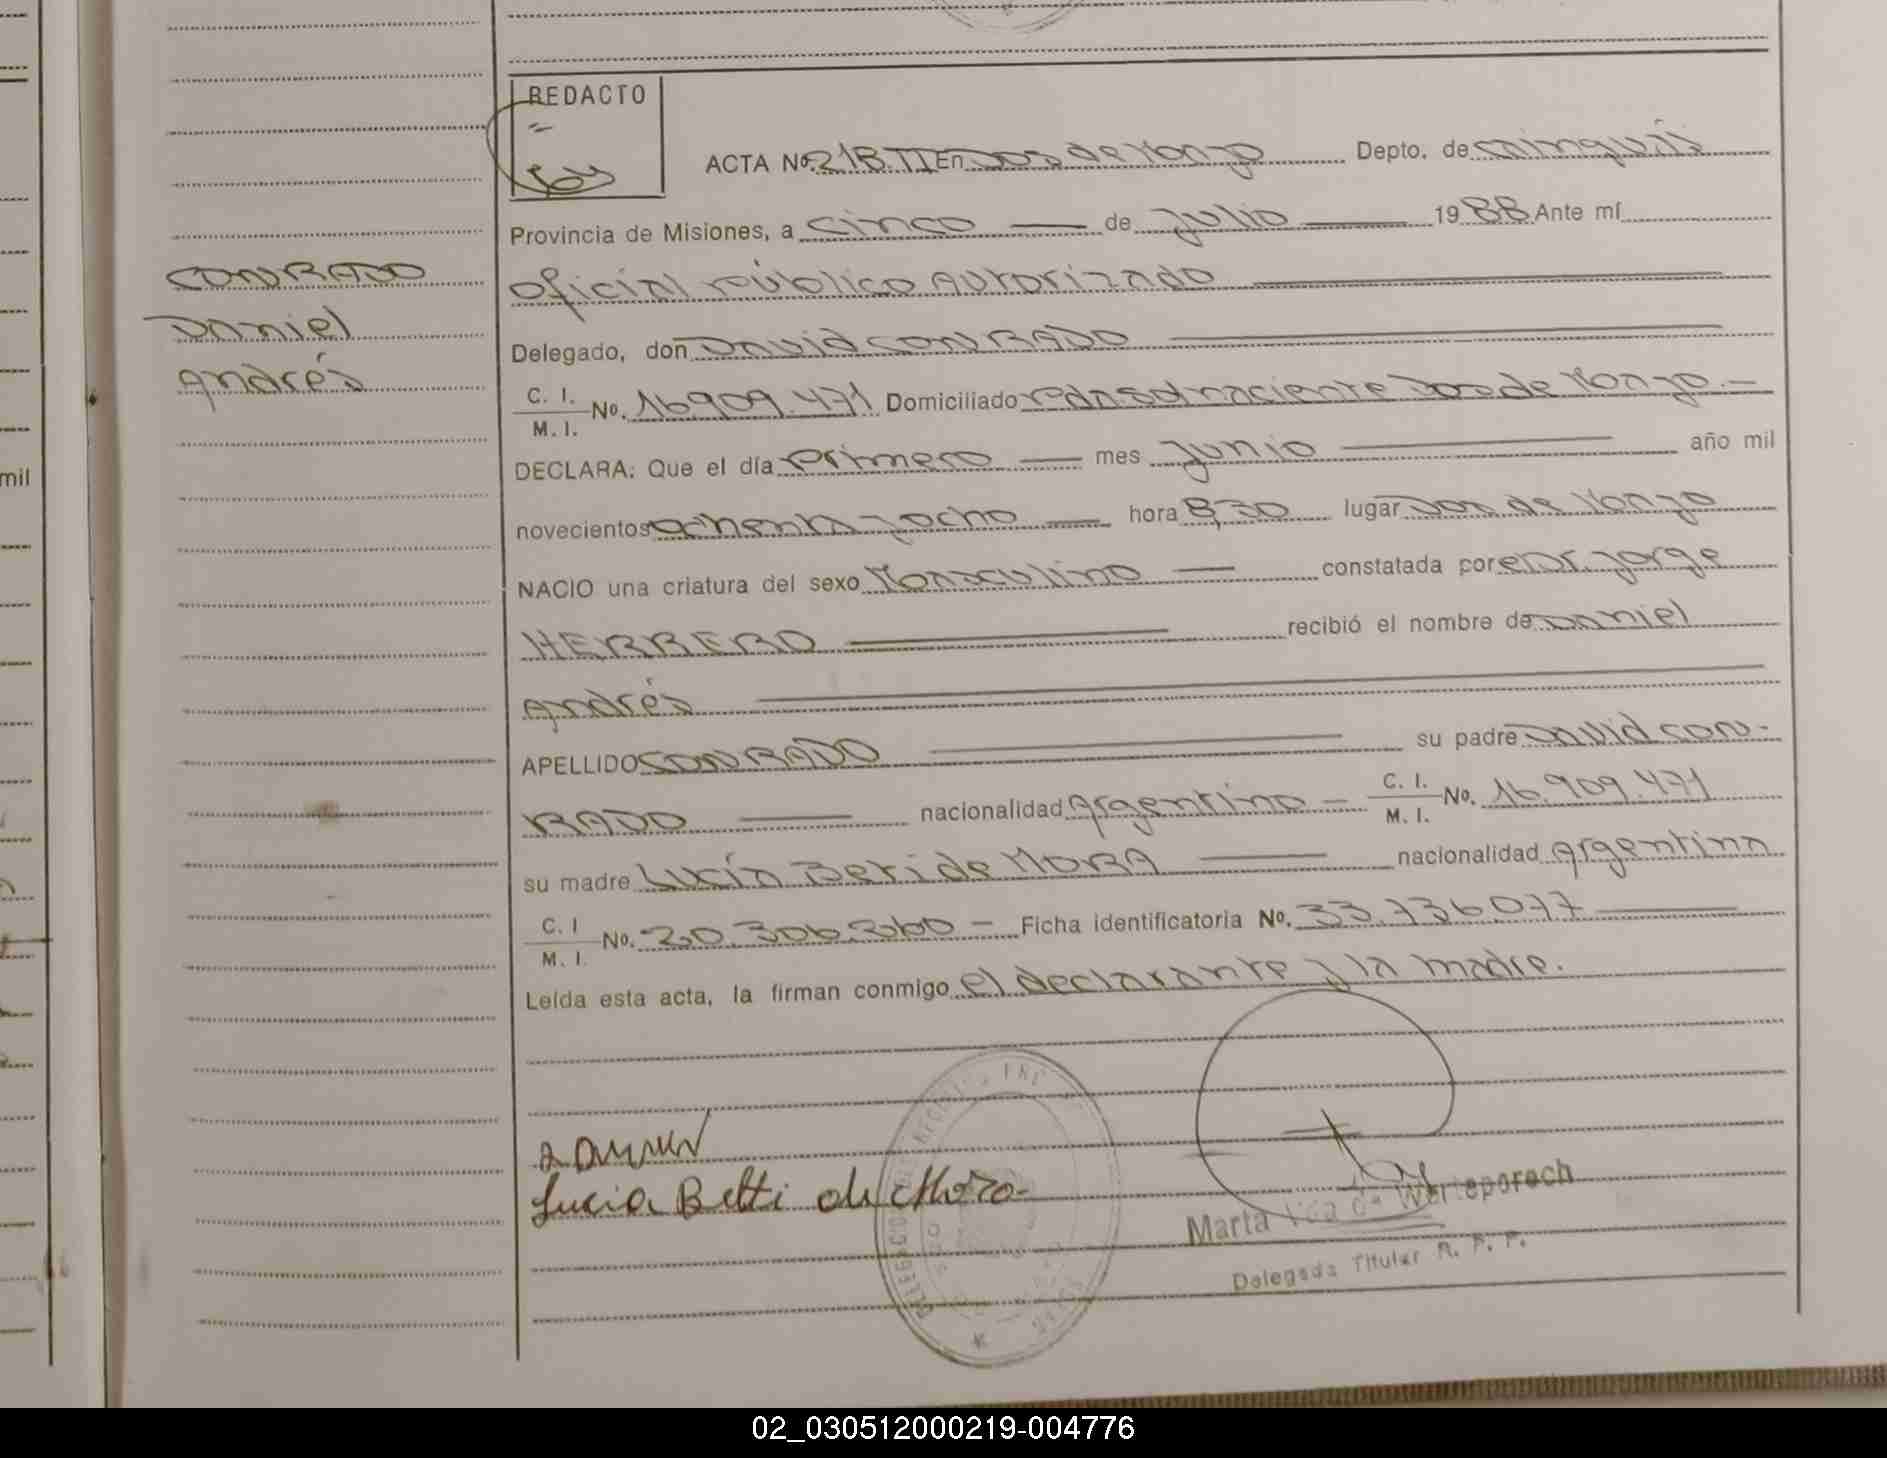 REDACTO
ACTA No. 218.TII En Dos de Mayo Depto. de Cainguás
Provincia de Misiones, a cinco de Julio 1988 Ante mí
Oficial público Autorizado
CONRADO
Daniel
Andrés
Delegado, don David CONRADO
C. I.
M. I. No. 16.909.471 Domiciliado naciente Dos de Mayo.-
DECLARA: Que el día primero mes Junio año mil
novecientos ochenta y ocho hora 8,30 lugar Dos de Mayo
NACIO una criatura del sexo Masculino constatada por el Dr. Jorge
HERRERO recibió el nombre de Daniel
Andrés
APELLIDO CONRADO su padre David CON-
RADO nacionalidad Argentina - C. I.
M. I. No. 16.909.471
su madre Lucía Beti de MORA nacionalidad Argentina
C. I
M. I. No. 20.306.360 - Ficha identificatoria No. 33.736.077
Leída esta acta, la firman conmigo el declarante y la madre.
Lucia Betti de Mora
Marta Vda de Werteporoch
Delegada Titular R. P. P.
mil
02_030512000219-004776